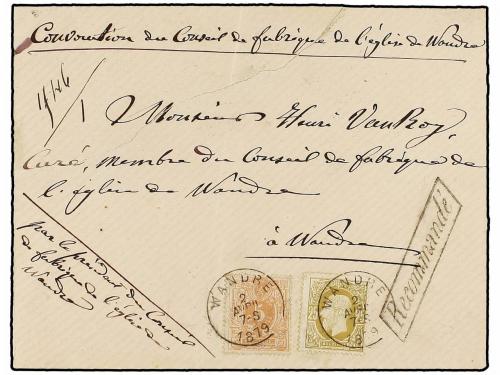 Convocation du Conseil de fabrique de l'église de Wandre
1
Monsieur Henri VanRoy,
Curé, membre du Conseil de fabrique de
l'église de Wandre
à Wandre
par le président du Conseil
de fabrique de l'église de
Wandre
Recommandé
WANDRE
2
AVRI
7-S
1879
WANDRE
2
AVRI
7-S
1879